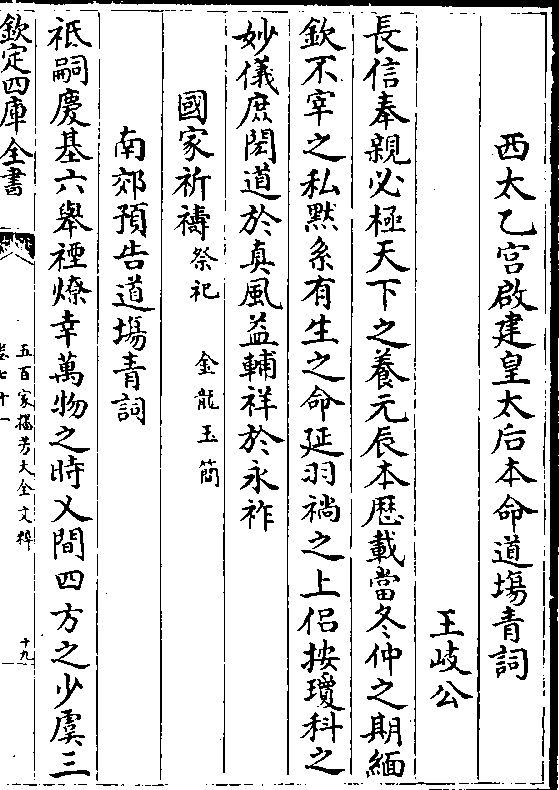 西太乙宮啟建皇太后本命道塲青詞
王岐公
長信奉親必極天下之養元辰本厯載當冬仲之期緬
欽不宰之私黙系有生之命延羽褵之上侣按瓊科之
妙儀庶閎道於真風益輔祥於永祚
國家祈禱祭祀 金龍玉簡
南郊預告道塲青詞
祗嗣慶基六舉禋燎幸萬物之時乂間四方之少虞三
欽定四庫全書
五百家播芳大全文粹
卷七十一
十九